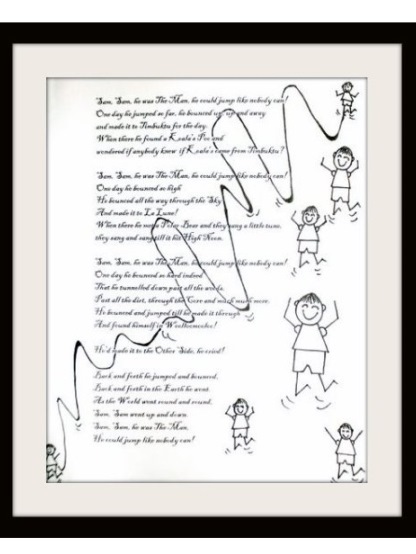 Sam, Sam, he was The Man, he could jump like nobody can!
One day he jumped so far, he bounced up, up and away
and made it to Timbuktu for the day.
When there he found a Koala's Poo and
wondered if anybody knew if Koala's came from Timbuktu?
Sam, Sam, he was The Man, he could jump like nobody can!
One day he bounced so high
He bounced all the way through the Sky
And made it to La Luna!
When there he met a Polar Bear and they sang a little tune,
they sang and sang till it hit High Noon.
Sam, Sam, he was The Man, he could jump like nobody can!
One day he bounced so hard indeed
That he tunnelled down past all the weeds,
Past all the dirt, through the Core and much much more.
He bounced and jumped till he made it through
And found himself in
He'd made it to the Other Side, he cried!
Back and forth he jumped and bounced,
Back and forth in the Earth he went
As the World went round and round,
Sam, Sam went up and down
Sam, Sam, he was The Man,
He could jump like nobody can!